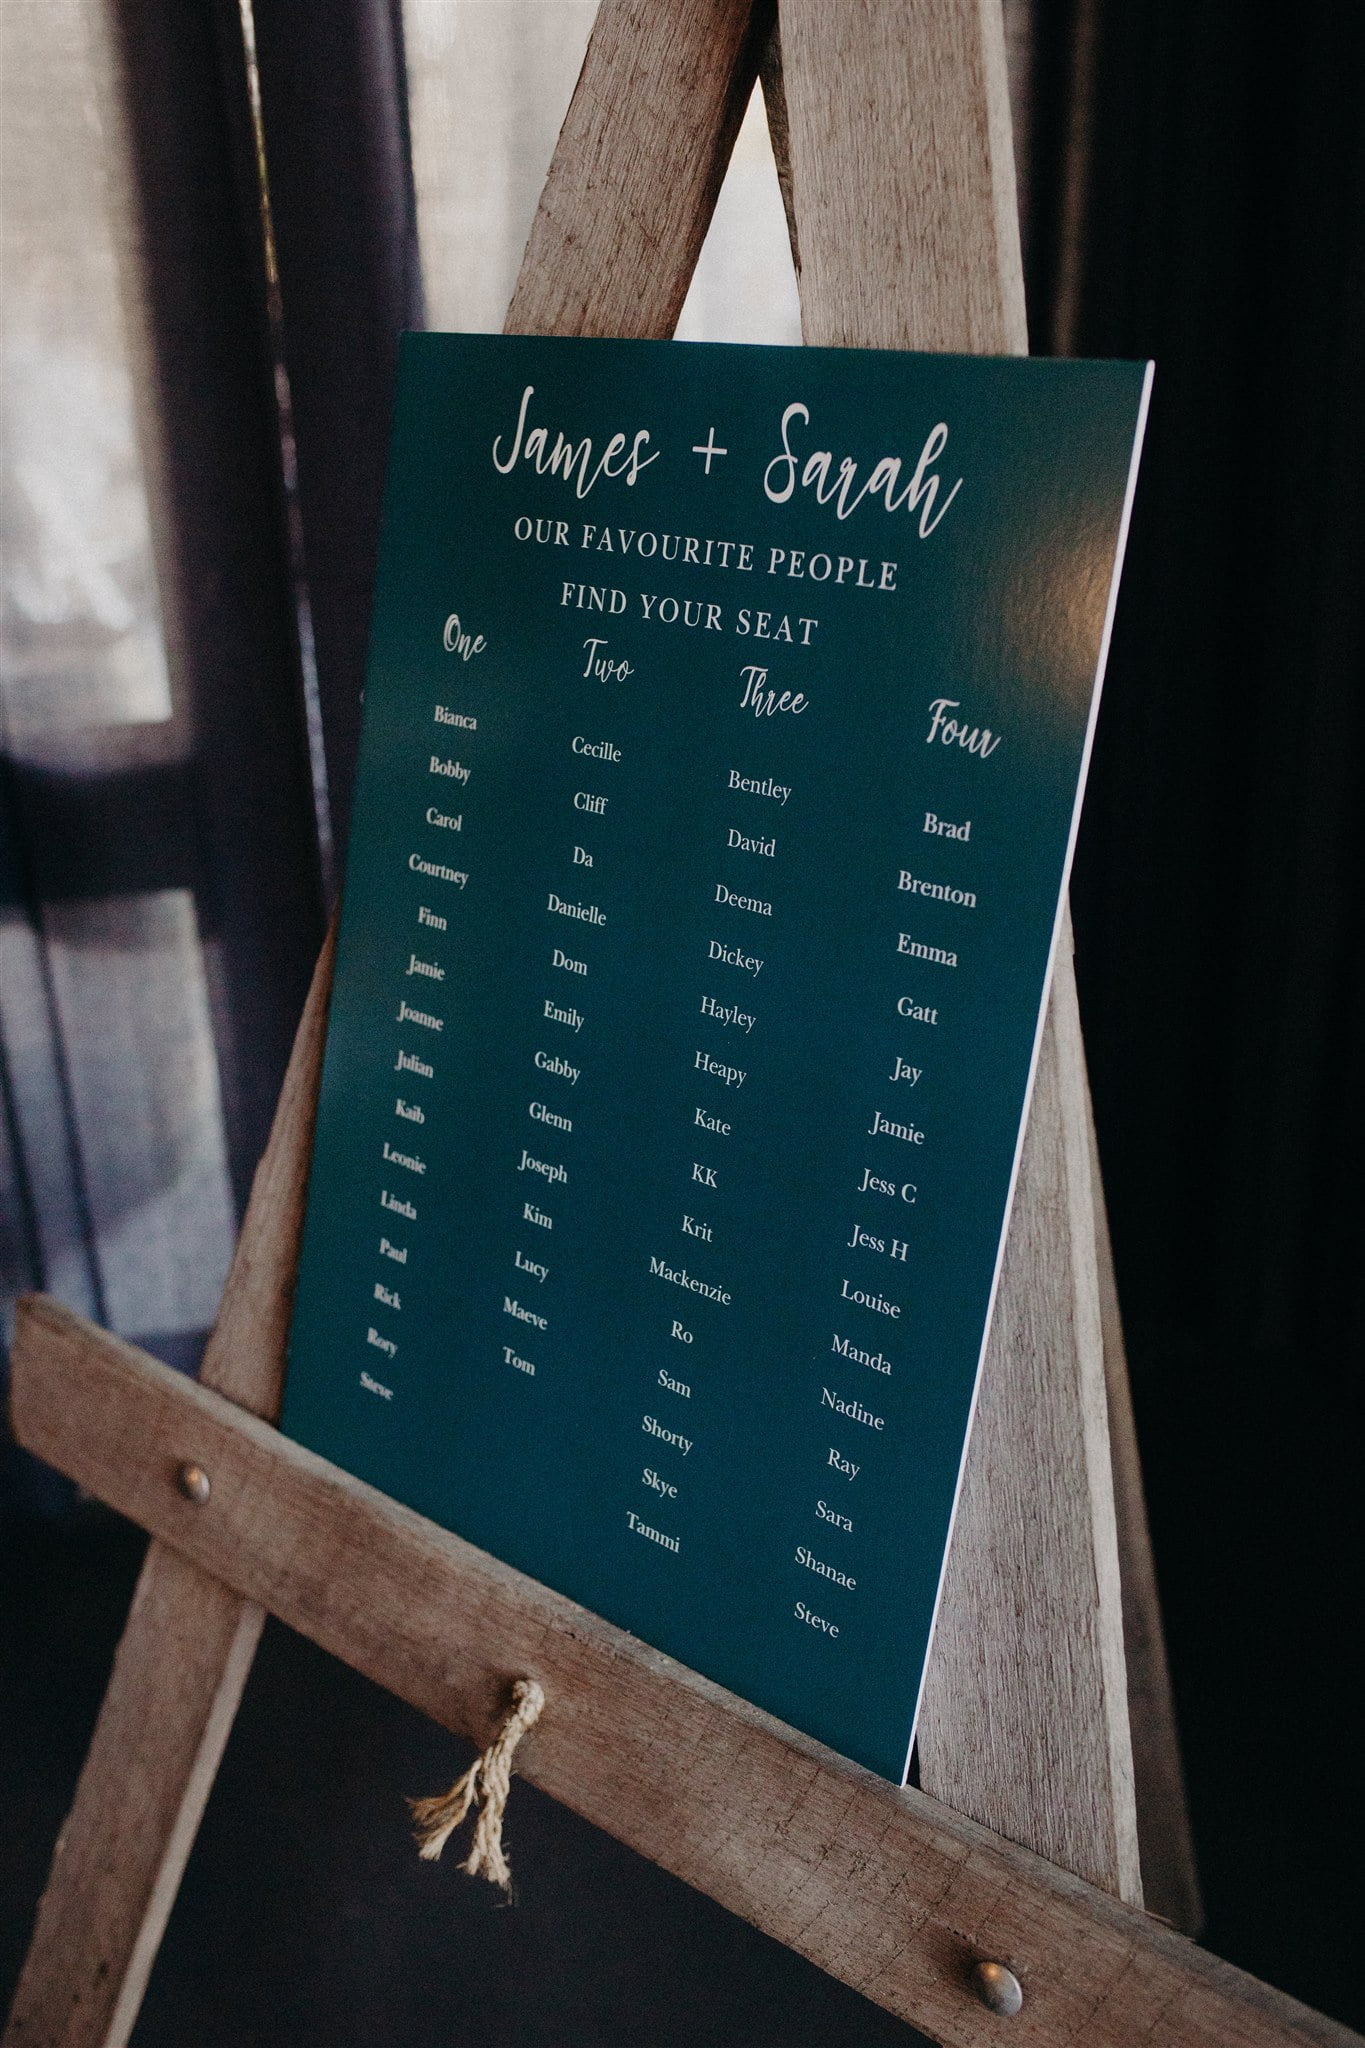 James + Sarah
OUR FAVOURITE PEOPLE
FIND YOUR SEAT
One
Bianca
Bobby
Carol
Courtney
Finn
Jamie
Joanne
Julian
Kaib
Leonie
Linda
Paul
Rick
Rory
Steve
Two
Cecille
Cliff
Da
Danielle
Dom
Emily
Gabby
Glenn
Joseph
Kim
Lucy
Maeve
Tom
Three
Bentley
David
Deema
Dickey
Hayley
Heapy
Kate
KK
Krit
Mackenzie
Ro
Sam
Shorty
Skye
Tammi
Four
Brad
Brenton
Emma
Gatt
Jay
Jamie
Jess C
Jess H
Louise
Manda
Nadine
Ray
Sara
Shanae
Steve